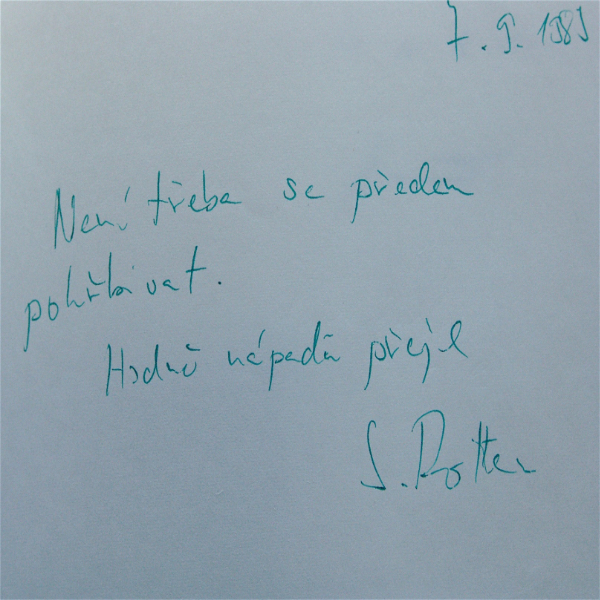 7. 9. 1989
Není třeba se předem
pohřbívat.
Hodně nápadů přeje
S. Rotter